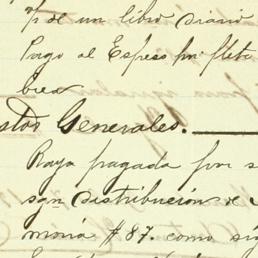 p. de un libro diario
Pago al Espreso por flete
brea
stos Generales.
Raya pagada por s
sgn distribución de
moria #87. como sig